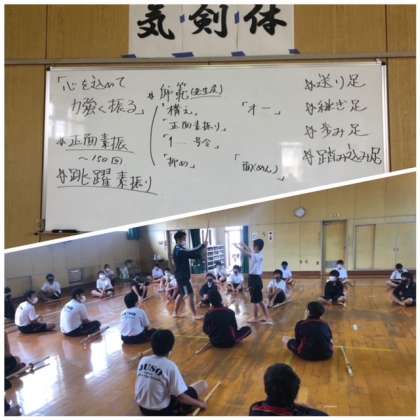 気剣体
「心を込めて
力強く振る」
☆正面素振
〜150回
☆跳躍素振り
☆師範(先生尾)
「構え」
「正面素振り」
「1… 号令
「オー」
「面(めん)」
☆送り足
☆継ぎ足
☆歩み足
☆踏み込み足